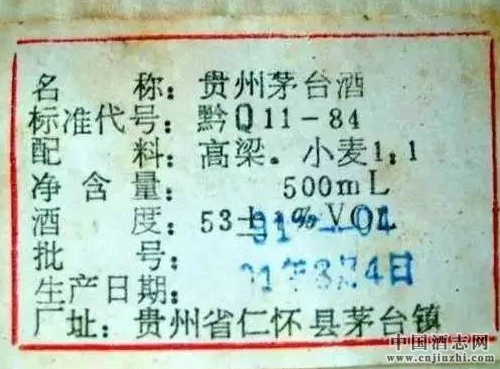 名 称：贵州茅台酒
标准代号：黔Q11-84
配 料：高梁．小麦1:1
净含量： 500mL
酒 度：53±1%VOL
批 号： 91—04
生产日期： 91年3月4日
厂址：贵州省仁怀县茅台镇
中国酒志网
www.cnjiuzhi.com